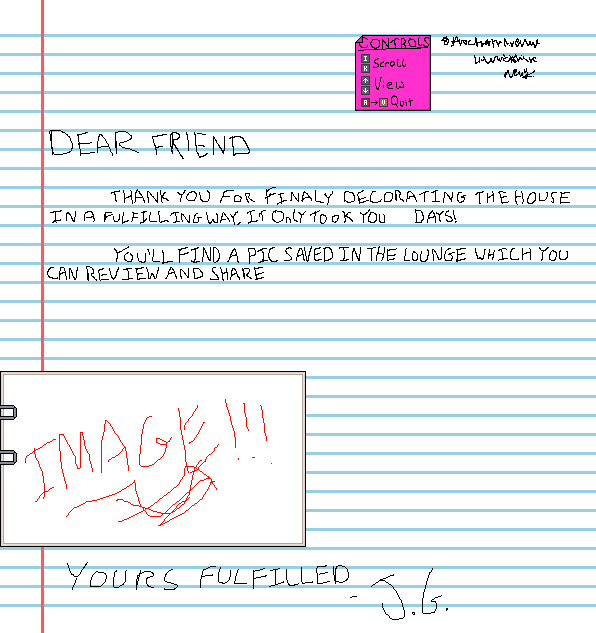 CONTROLS
I
K Scroll
↑
↓ View
R → U Quit
DEAR FRIEND
THANK YOU FOR FINALY DECORATING THE HOUSE
IN A FULFILLING WAY, IT ONLY TOOK YOU DAYS!
YOU'LL FIND A PIC SAVED IN THE LOUNGE WHICH YOU
CAN REVIEW AND SHARE
IMAGE!!!
YOURS FULFILLED
- J.G.